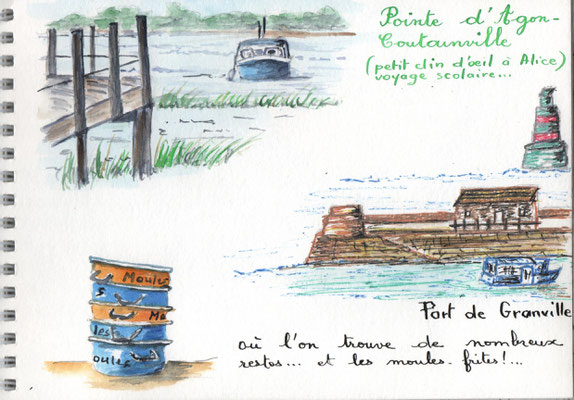 Pointe d'Agon-
Coutainville
(petit clin d'œil à Alice)
voyage scolaire...
Port de Granville
où l'on trouve de nombreux
restos... et les moules-frites!...
Moules
s
Mo
les
oules